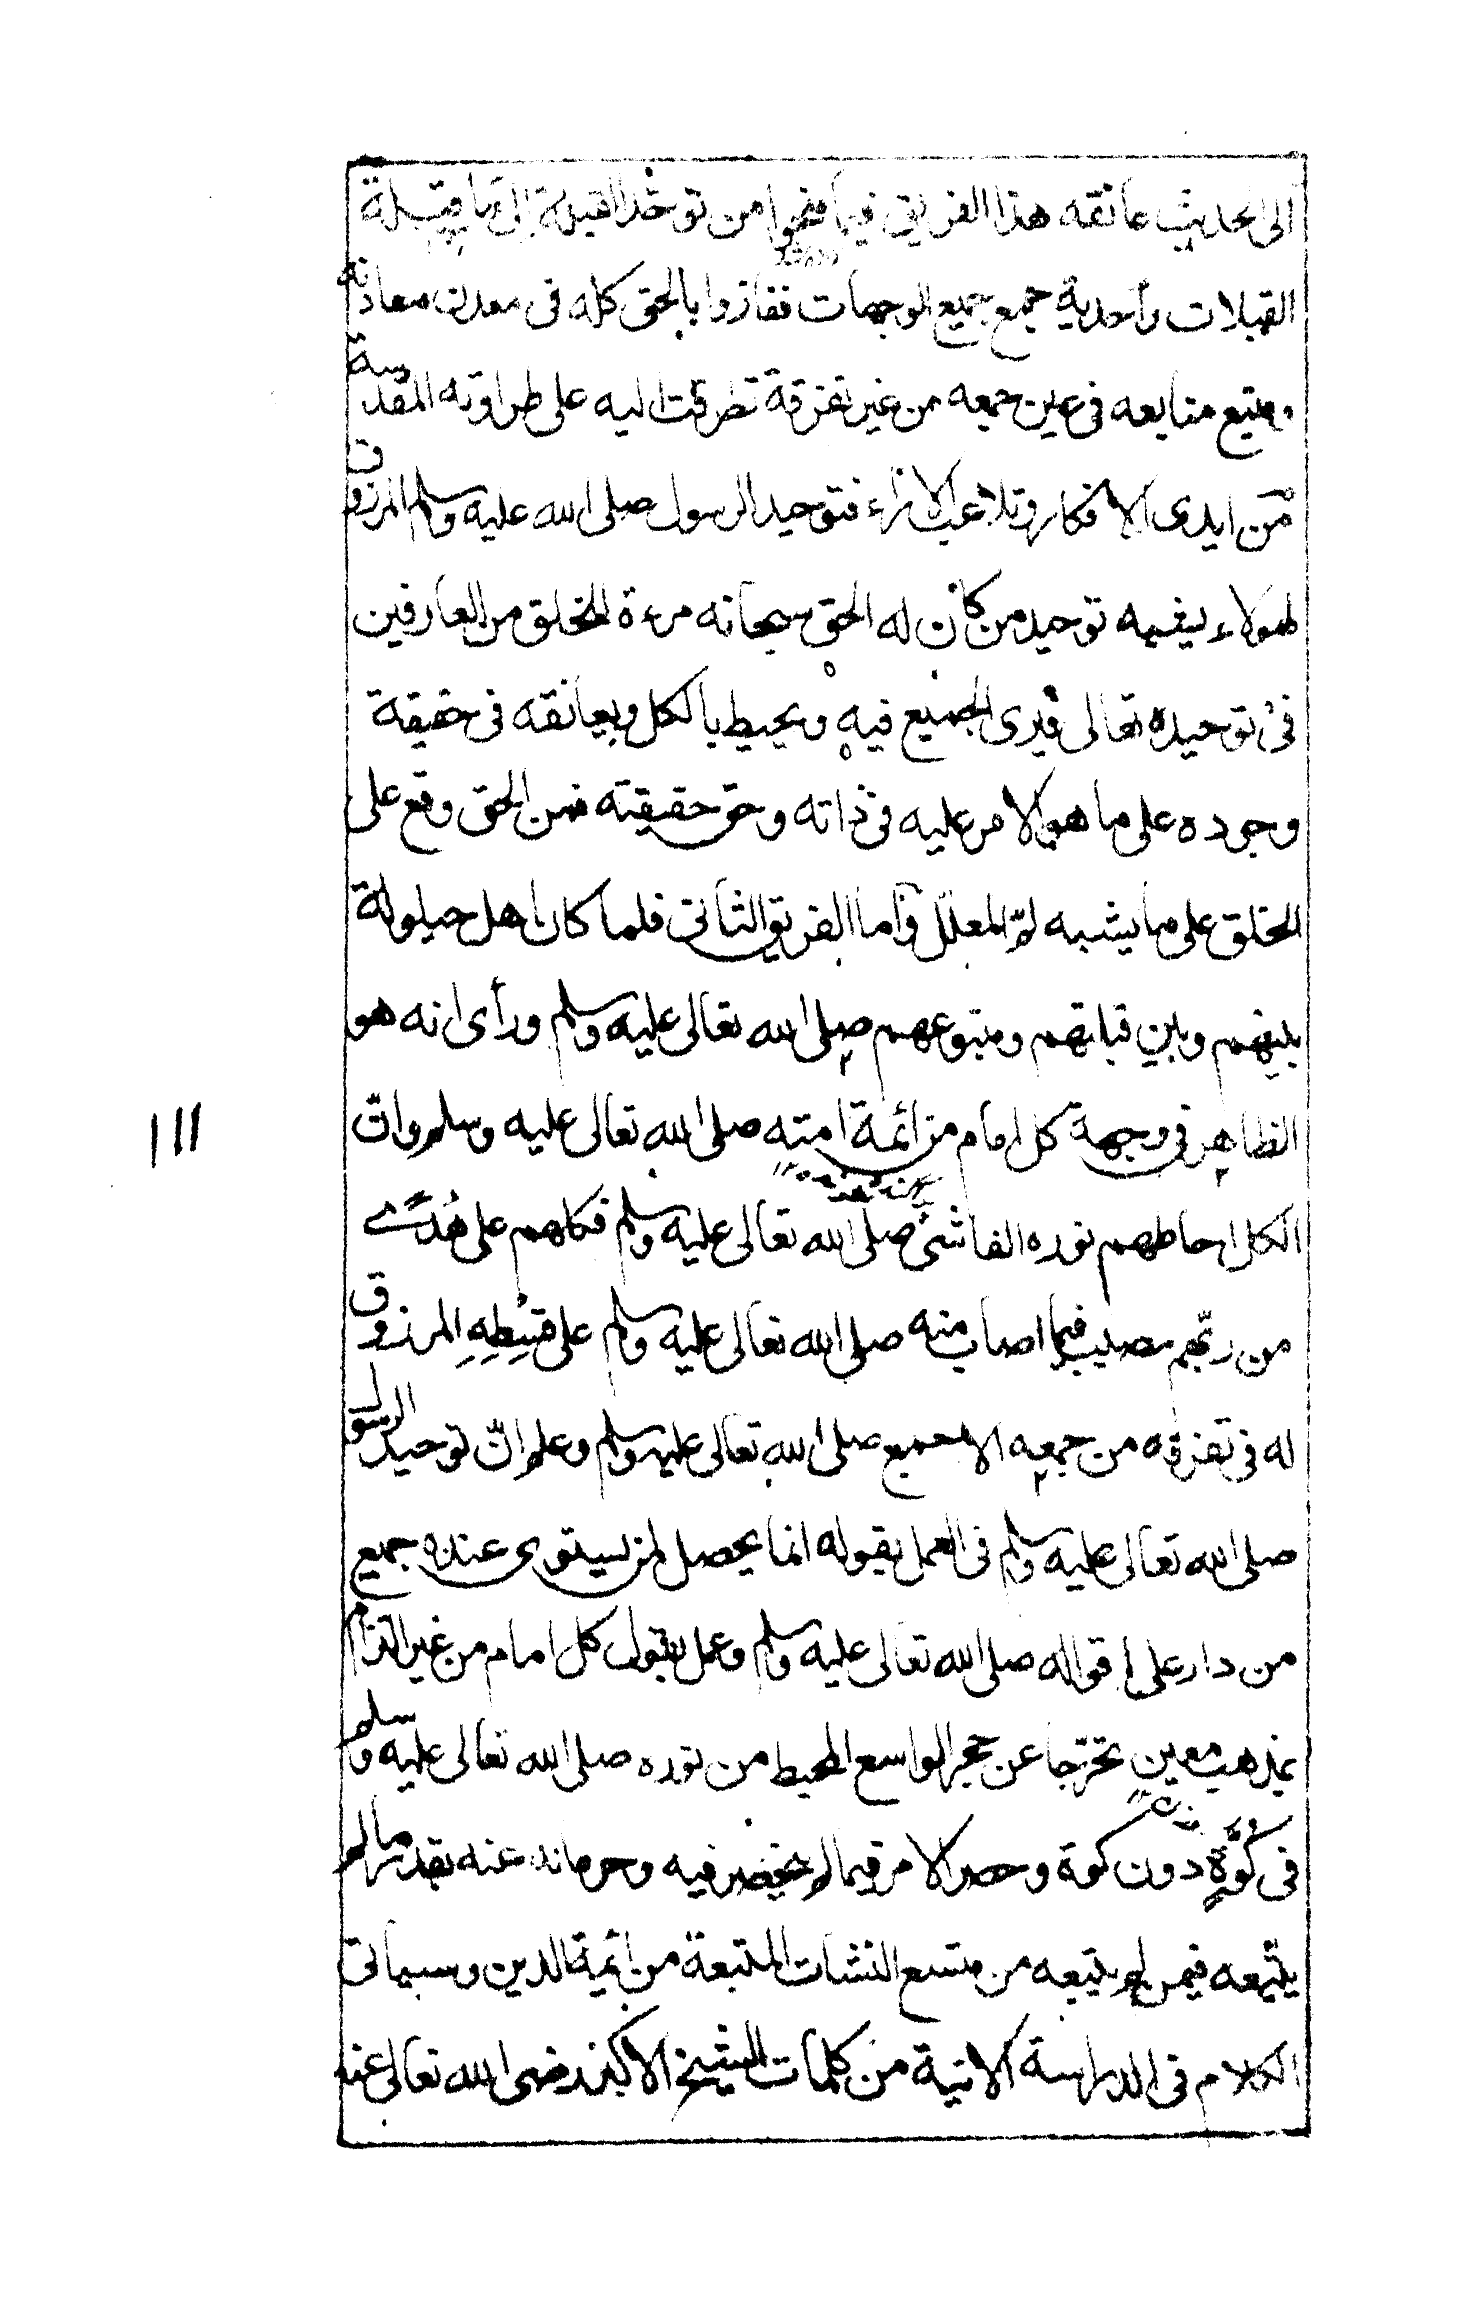 الى الحديث عانقه هذا الفريق فيما منحوا من توحد القبلة الى ما قبلة
القبلات وأحدية جمع جميع الوجهات ففازوا بالحق كله فى معدن معادنه
ومنبع منابعه فى عين جمعه من غير تفرقة تطرقت اليه على طراوته المقدسة
من ايدى الافكار وتلاعب الآراء فتوحيد الرسول صلى الله عليه وسلم المرزوق
لهولاء يشبه توحيد من كان له الحق سبحانه مرءة للخلق من العارفين
فى توحيده تعالى فيرى الجميع فيه ويحيط بالكل ويعانقه فى حقيقة
وجوده على ما هو الامر عليه فى ذاته وحق حقيقته فمن الحق وقع على
الخلق على ما يشبه لمّ المعلّل وأما الفريق الثانى فلما كان اهل حيلولة
بينهم وبين قبلتهم ومتبوعهم صلى الله تعالى عليه وسلم ورأى انه هو
الظاهر فى وجهة كل امام من ائمة امته صلى الله تعالى عليه وسلم وان
الكل احاطهم نوره الفاشى صلى الله تعالى عليه وسلم فكلهم على هُدًى
من ربهم مصيب فيما اصاب منه صلى الله تعالى عليه وسلم على قسطِهِ المرزوق
له فى تفرقه من جمعه الاجمع صلى الله تعالى عليه وسلم وعلم انّ توحيد الرسول
صلى الله تعالى عليه وسلم فى العمل بقوله انما يحصل لمن يستوى عنده جميع
من دار على اقواله صلى الله تعالى عليه وسلم وعمل بقول كل امام من غير التزام
بمذهب معين تحرّجا عن حجر الواسع المحيط من نوره صلى الله تعالى عليه وسلم
فى كُوَّةٍ دون كوة وحصر الامر فيما لم ينحصر فيه وحرمانه عنه بقدر ما لم
يتبعه فيمن لم يتبعه من متسع النشات المتبعة من ائمة الدين وسياتى
الكلام فى الدراسة الاتية من كلمات الشيخ الاكبر رضى الله تعالى عنه
١١١